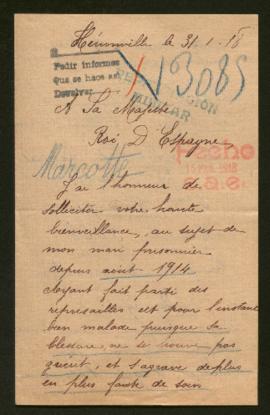 Hérinville le 31-1-18
Pedir informes
Que se hace en
Devolver
13085
A Sa Majesté
Roi D'Espagne
Marcotte
Fecho
J'ai l'honneur de
solliciter votre haute
bienveillance, au sujet de
mon mari prisonnier
depuis août 1914
ayant fait parti des
represailles est pour l'instant
bien malade puisque sa
blessure ne se trouve pas
guérit, et s'agrave de plus
en plus faute de soin